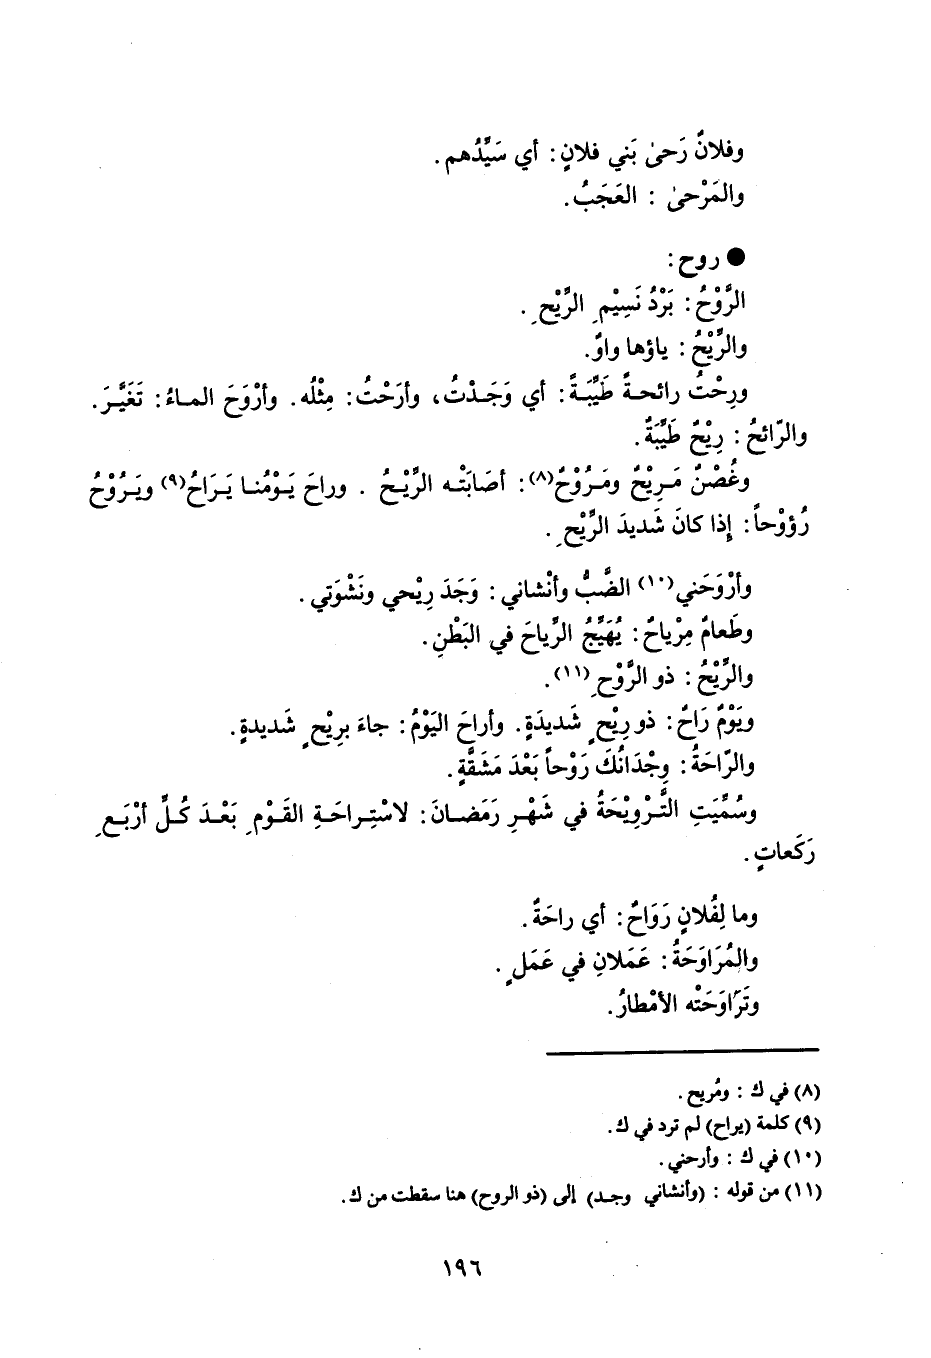 وفلانٌ رَحىٰ بَني فلانٍ: أي سَيِّدُهم.
والمَرْحىٰ : العَجَبُ.
● روح:
الرَّوْحُ: بَرْدُ نَسِيْمِ الرِّيْحِ.
والرِّيْحُ: ياؤها واوٌ.
ورِحْتُ رائحـةً طَيِّبَـةً: أي وَجَـدْتُ، وأرَحْتُ: مِثْلُه. وأرْوَحَ المـاءُ: تَغَيَّـرَ.
والرّائحُ: رِيْحٌ طَيِّبَةٌ.
وغُصْنٌ مَـرِيْحٌ ومَـرُوْحٌ(٨): أصَابَتْـه الرِّيْـحُ . وراحَ يَـوْمُنـا يَـرَاحُ(٩) ويَـرُوْحُ
رُؤوْحاً: إِذا كانَ شَديدَ الرِّيْحِ.
وأرْوَحَني(١٠) الضَّبُّ وأنْشاني: وَجَدَ رِيْحي ونَشْوَتي.
وطَعامٌ مِرْياحٌ: يُهَيِّجُ الرِّياحَ في البَطْنِ.
والرِّيْحُ: ذو الرَّوْحِ(١١).
ويَوْمٌ رَاحٌ: ذو رِيْحٍ شَديدَةٍ. وأراحَ اليَوْمُ: جاءَ برِيْحٍ شَديدةٍ.
والرّاحَةُ: وِجْدَانُكَ رَوْحاً بَعْدَ مَشَقَّةٍ.
وسُمِّيَتِ التَّـرْوِيْحَةُ في شَهْـرِ رَمَضـانَ: لاسْتِـراحَـةِ القَـوْمِ بَعْـدَ كُـلِّ أرْبَـعِ
رَكَعاتٍ.
وما لِفُلانٍ رَوَاحٌ: أي راحَةٌ.
والمُرَاوَحَةُ: عَمَلانِ في عَمَلٍ.
وتَرَاوَحَتْه الأمْطارُ.
(٨) في ك : ومُريح.
(٩) كلمة (يراح) لم ترد في ك.
(١٠) في ك : وأرحني.
(١١) من قوله : (وأنشاني وجـد) إلى (ذو الروح) هنا سقطت من ك.
١٩٦